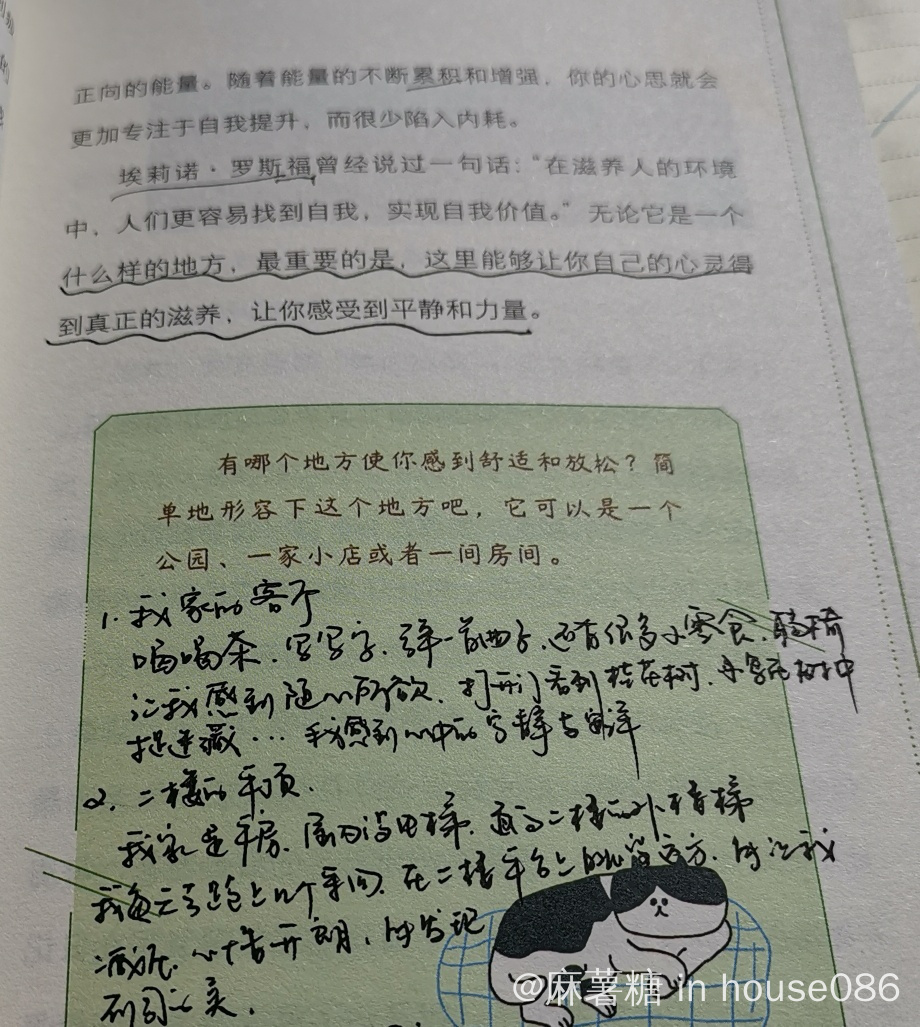 正向的能量。随着能量的不断累积和增强，你的心思就会
更加专注于自我提升，而很少陷入内耗。
埃莉诺·罗斯福曾经说过一句话：“在滋养人的环境
中，人们更容易找到自我，实现自我价值。”无论它是一个
什么样的地方，最重要的是，这里能够让你自己的心灵得
到真正的滋养，让你感受到平静和力量。
有哪个地方使你感到舒适和放松？简
单地形容下这个地方吧，它可以是一个
公园、一家小店或者一间房间。
1. 我家的客厅
喝喝茶.写写字.弹一首曲子.还有很多小零食.躺椅
让我感到随心所欲.打开门看到桂花树.小鸟在树中
捉迷藏…我感到心中的宁静与
2. 二楼的平顶.
我家是平房.屋内没电梯.直了二楼的外
我每天 跑上几个来回.在二楼平台上 远方.
心情开朡.
不同的美.
@麻薯糖 in house086